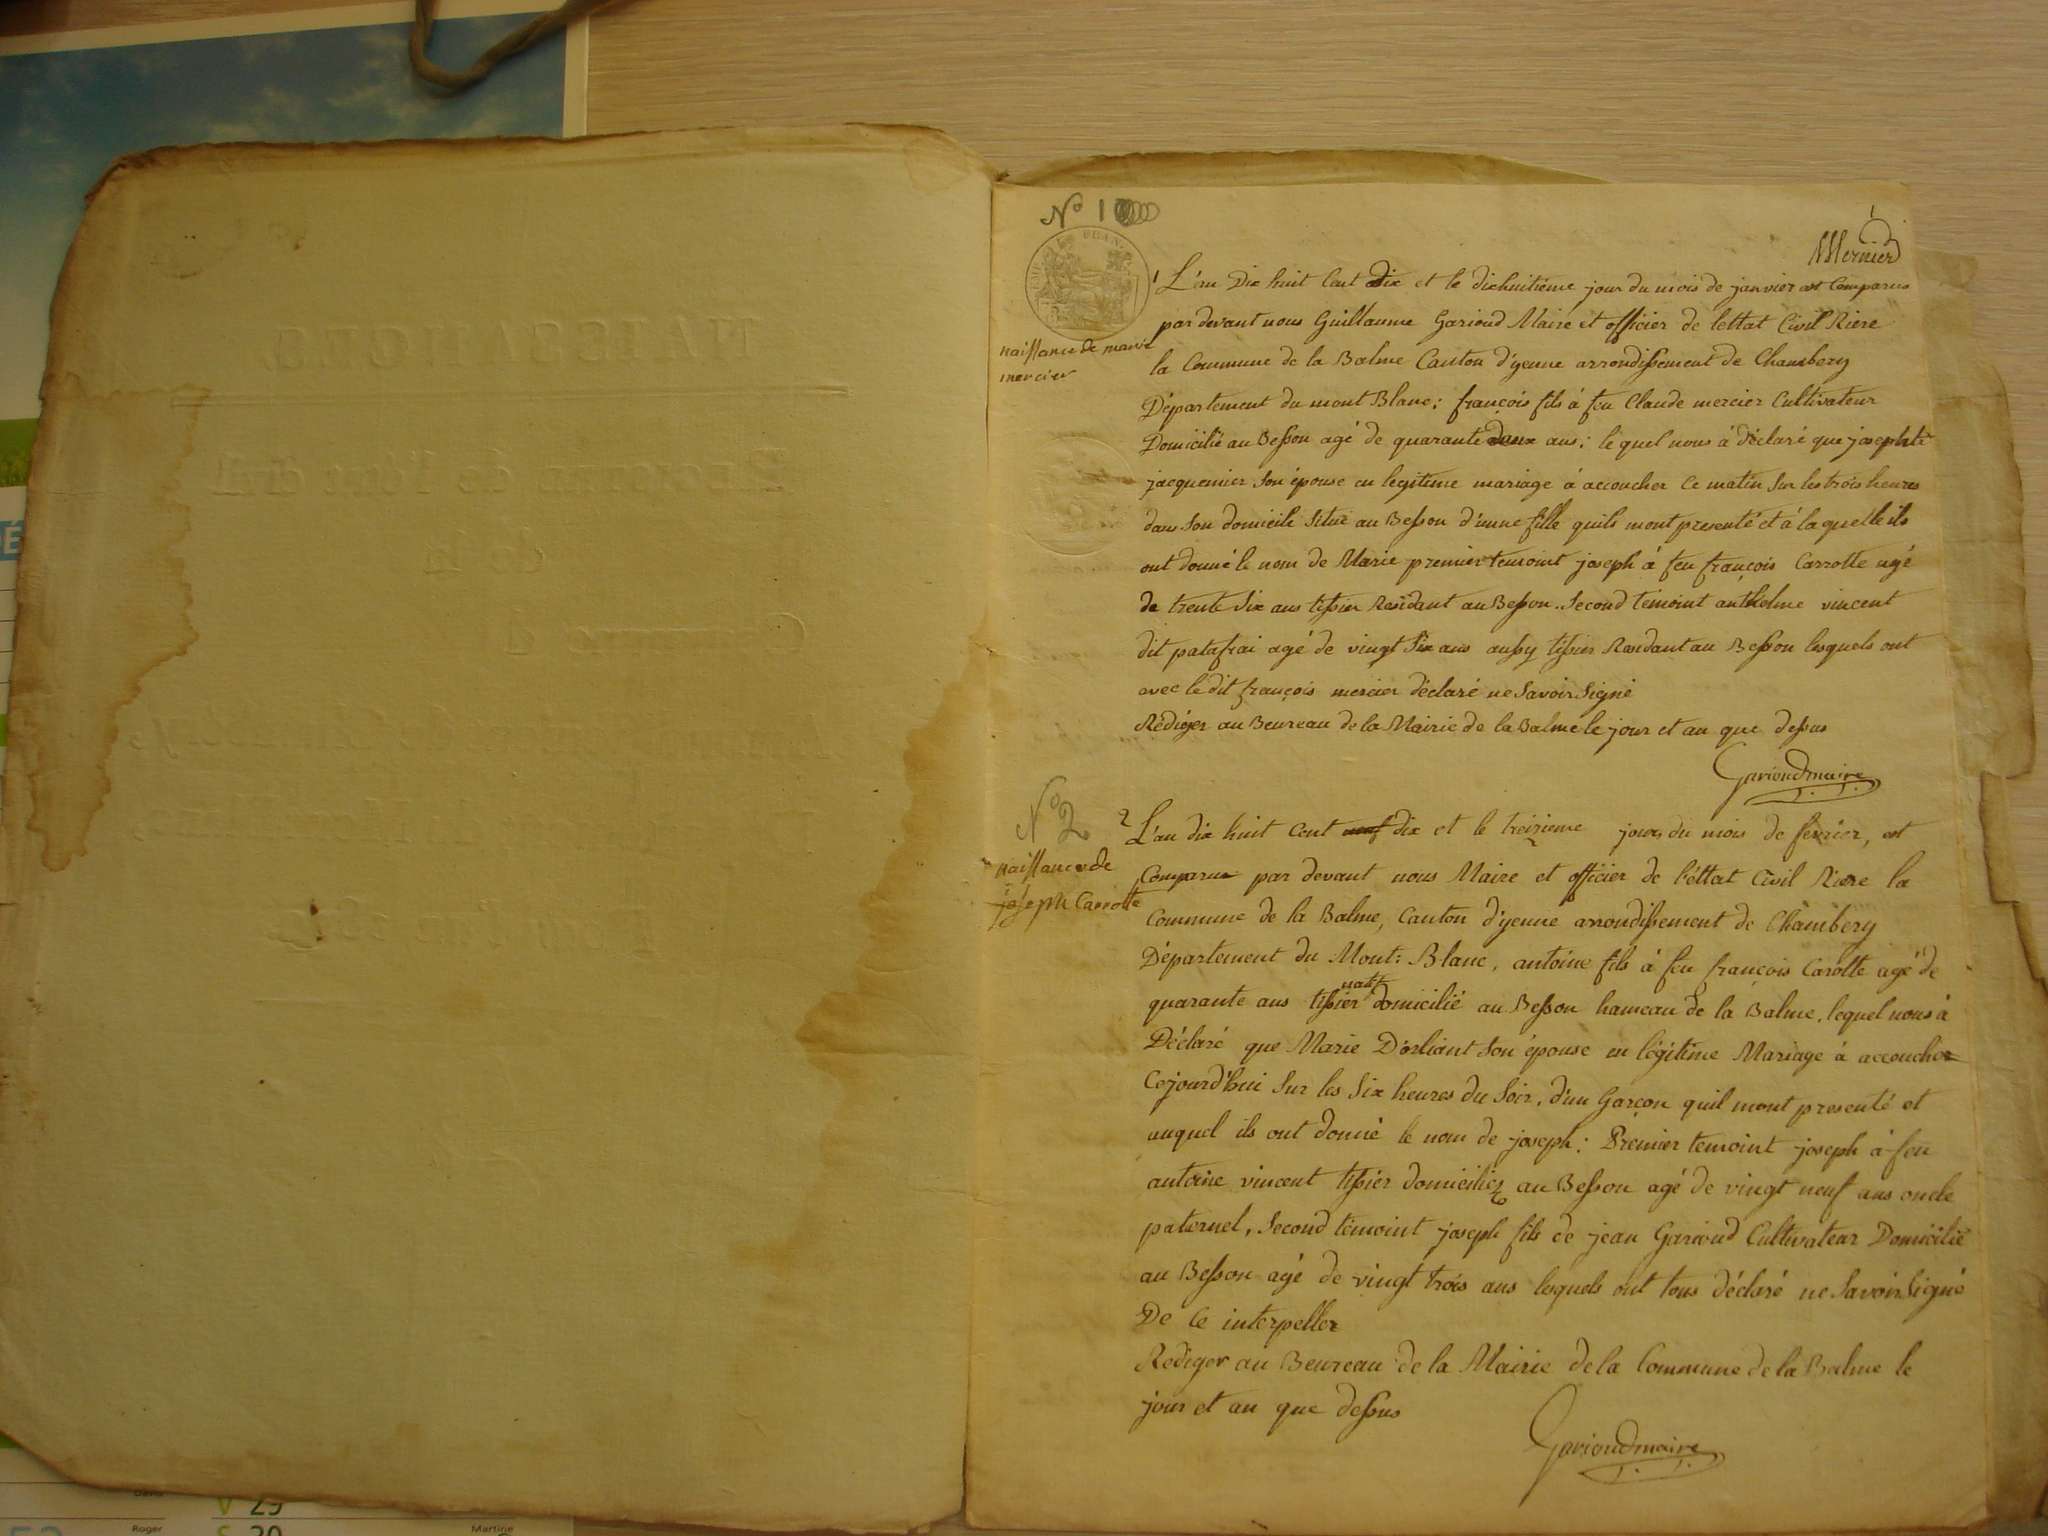 N° 1
Mernier
1 L'an Dix huit Cent dix et le dixhuitième jour du mois de janvier est Comparus
par devant nous Guillaume Garioud Maire et officier de lettat Civil Riere
naissance de marie
mercier
la Commune de la Balme Canton d'yenne arrondissement de Chambery
Département du mont Blanc; françois fils à feu Claude mercier Cultivateur
Domicilié au Besson agé de quarante deux ans; lequel nous à déclaré que josephte
jacquemier son épouse en legitime mariage à accoucher Ce matin sur les trois heures
dans son domicile situé au Besson d'unne fille quils mont presenté et à laquelle ils
ont donné le nom de Marie premier temoint joseph à feu françois Carrotte agé
de trente six ans tissier Residant au Besson. Second témoint anthelme vincent
dit patafrai agé de vingt six ans aussy tissier Residant au Besson lesquels ont
avec le dit françois mercier déclaré ne Savoir Signé
Rédiger au Beureau de la Mairie de la Balme le jour et an que dessus
Garioud maire
N° 2
2 L'an dix huit Cent neuf dix et le treizieme jours du mois de fevrier, est
naissance de
joseph Carrotte
Comparus par devant nous Maire et officier de l'éttat Civil Riere la
Commune de la Balme, Canton d'yenne arrondissement de Chambery
Département du Mont: Blanc, antoine fils à feu françois Carotte agé de
quarante ans tissier natif domicilié au Besson hameau de la Balme, lequel nous à
Déclaré que Marie Dorliant son épouse en légitime Mariage à accoucher
Cejourd'hui sur les Six heures du Soir, d'un Garçon quil mont presenté et
auquel ils ont donné le nom de joseph: Premier temoint joseph à feu
antoine vincent tissier domiciliez au Besson agé de vingt neuf ans oncle
paternel, Second témoint joseph fils de jean Garioud Cultivateur Domicilié
au Besson agé de vingt trois ans lesquels ont tous déclaré ne Savoir Signé
De Ce interpeller
Rediger au Beureau de la Mairie de la Commune de la Balme le
jour et an que dessus
Garioud maire
V 29
S 30
Roger
Martine